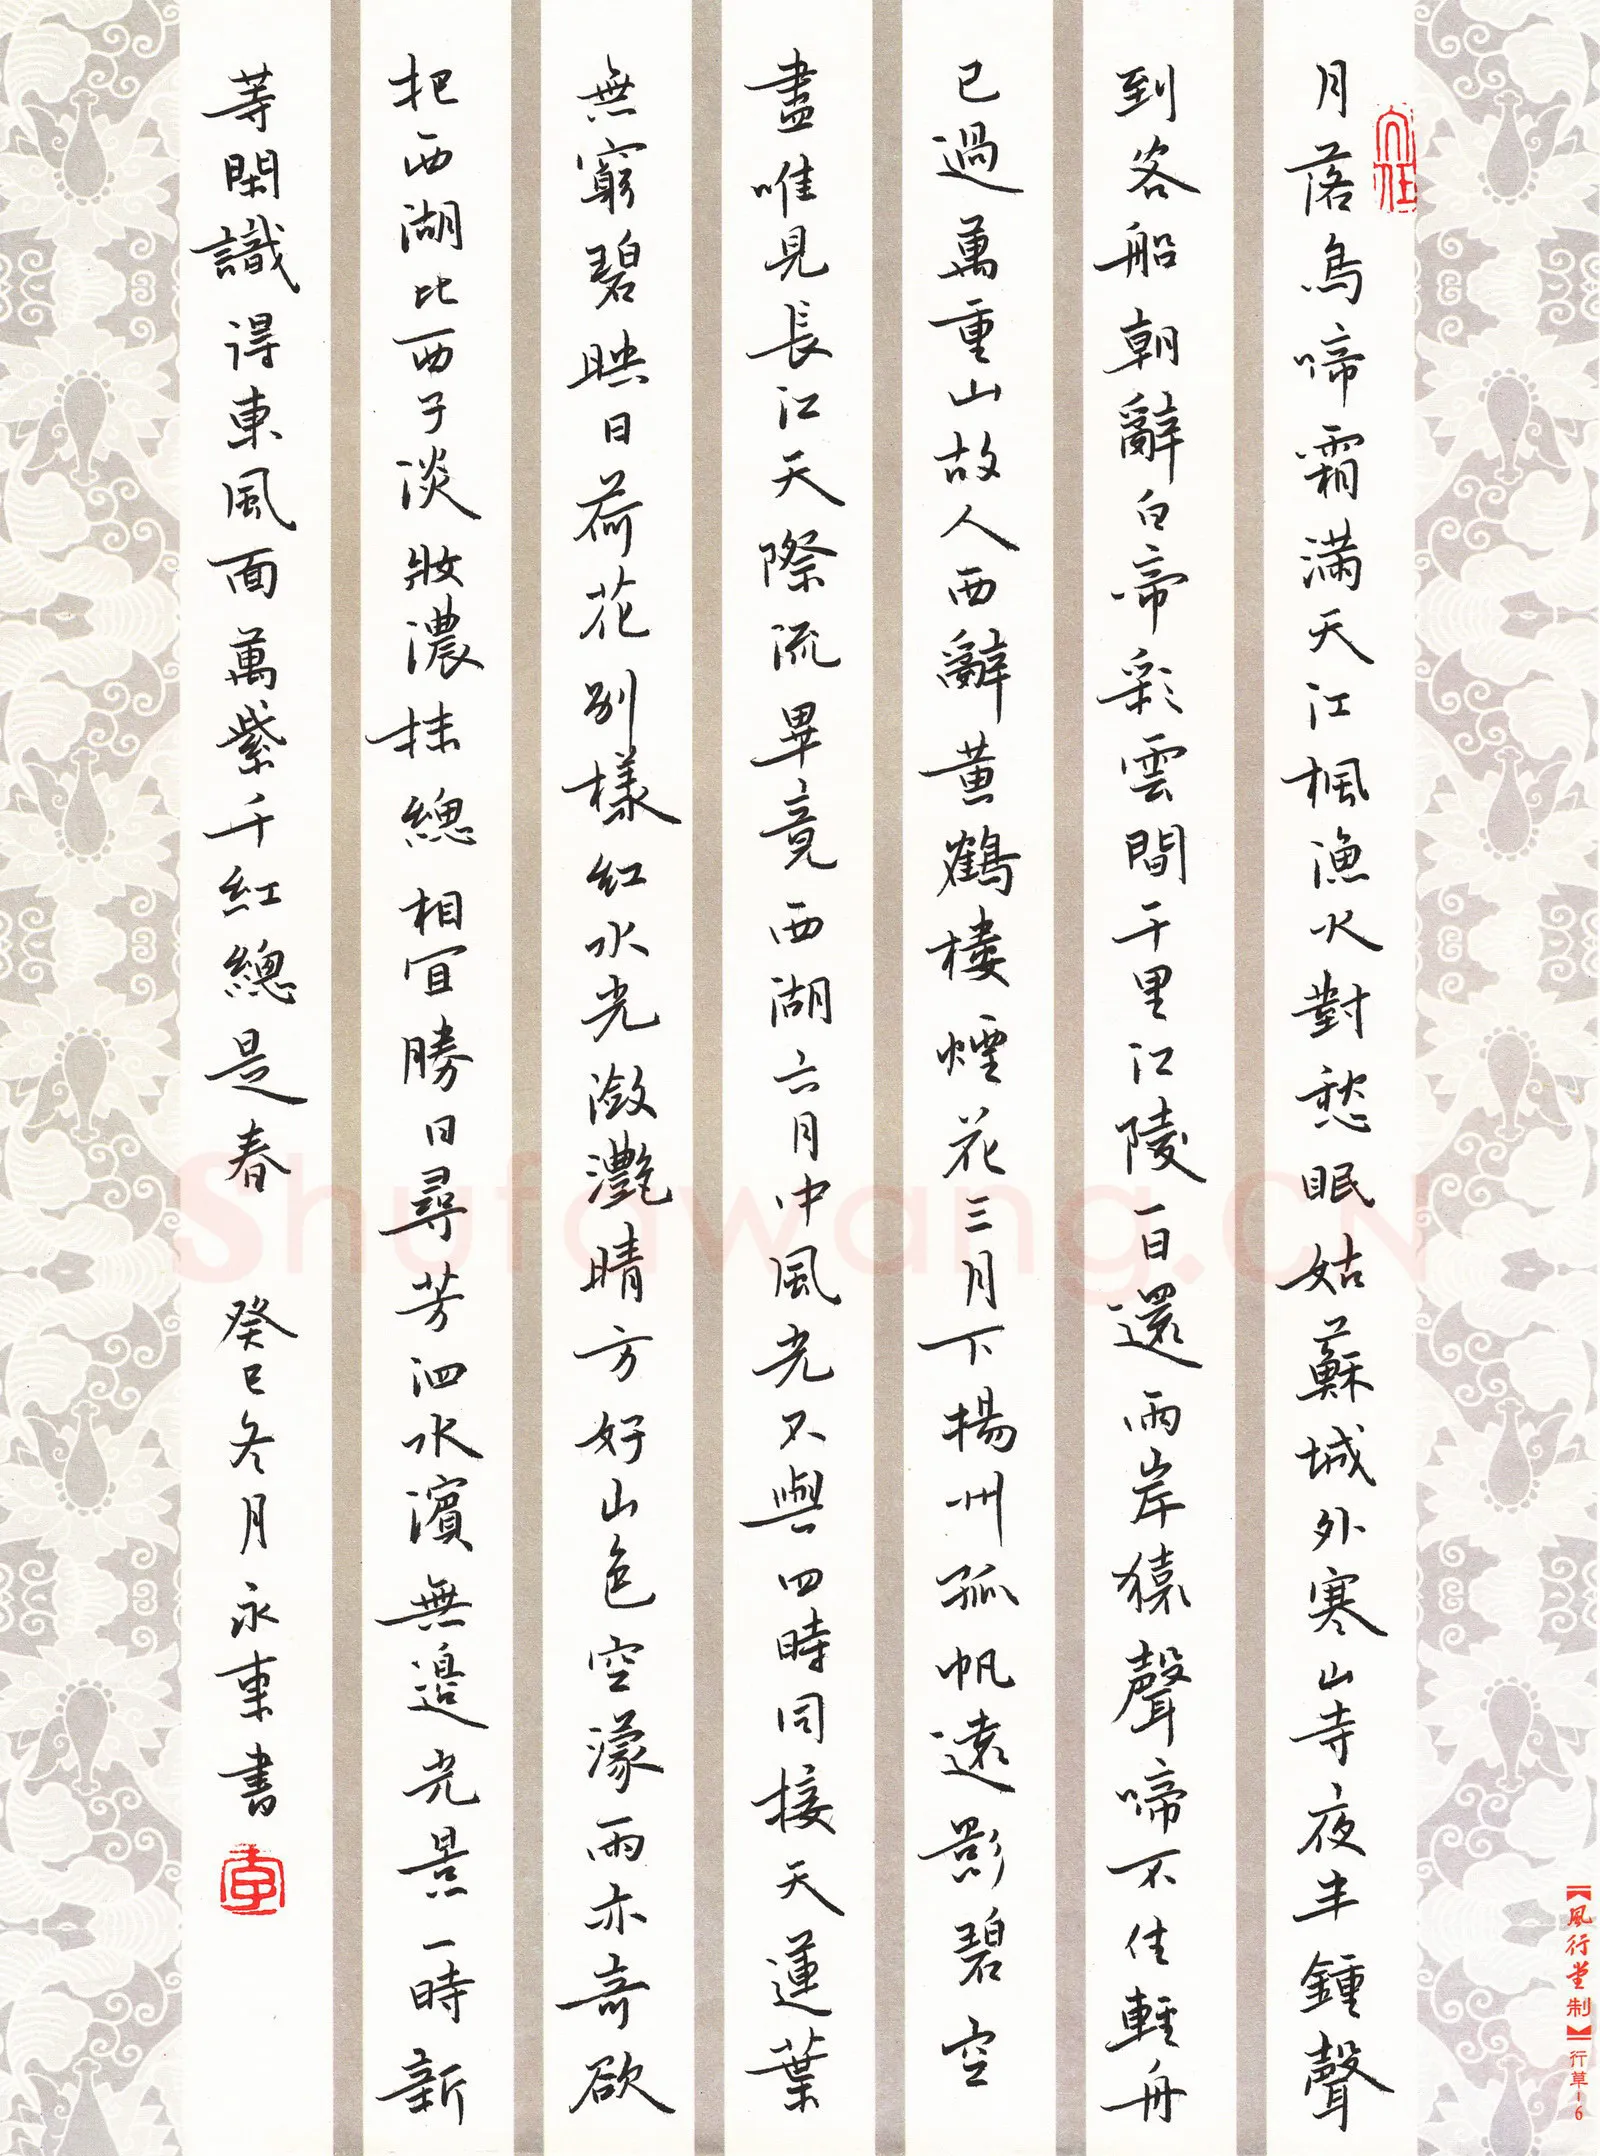 月落烏啼霜滿天江楓漁火對愁眠姑蘇城外寒山寺夜半鍾聲
到客船朝辭白帝彩雲間千里江陵一日還兩岸猿聲啼不住輕舟
已過萬重山故人西辭黃鶴樓煙花三月下揚州孤帆遠影碧空
盡唯見長江天際流畢竟西湖六月中風光不與四時同接天蓮葉
無窮碧映日荷花別樣紅水光瀲灩晴方好山色空濛雨亦奇欲
把西湖比西子淡妝濃抹總相宜勝日尋芳泗水濱無邊光景一時新
等閑識得東風面萬紫千紅總是春 癸巳冬月永東書
【風行堂制】行草-6
Shufawang.CN